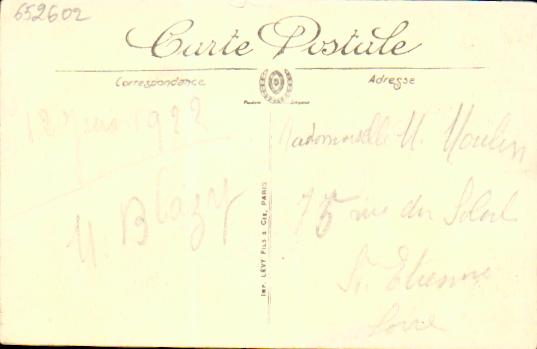 652602
Carte Postale
Correspondance
Adresse
1922
M. Blazy
IMP. LÉVY FILS & CIE, PARIS
Mademoiselle M. Moulin
15 rue du Soleil
St. Etienne
Loire